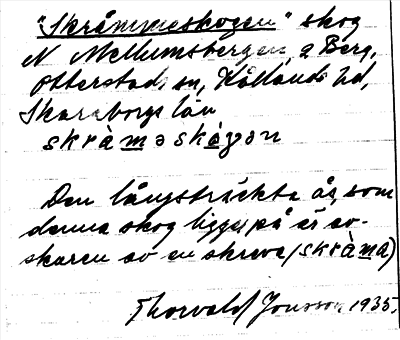 "Skråmmeskogen" skog
N Mellumsbergen, g Berg,
Otterstads sn, Kållands hd,
Skaraborgs län
skràməskógən
Den långsträckta ås, som
denna skog ligger på är av-
skuren av en skreva (skràma)
Thorvald Jonsson 1935.